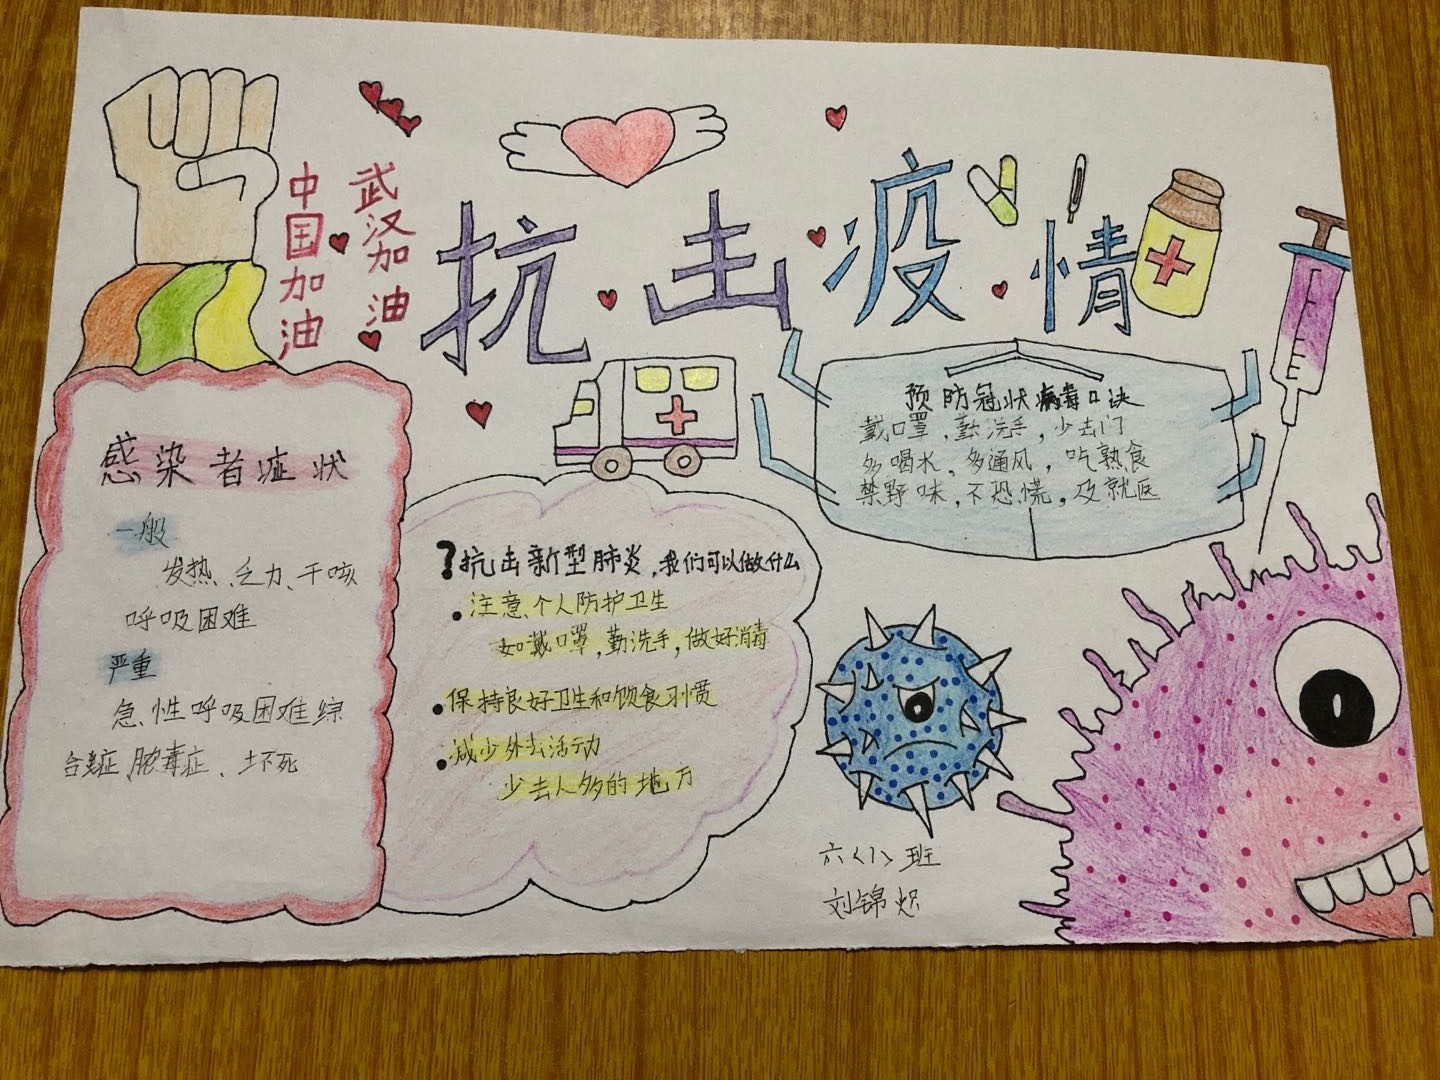 武汉加油
中国加油
抗击疫情
预防冠状病毒口诀
戴口罩,勤洗手,少去门
多喝水,多通风,吃熟食
禁野味,不恐慌,及就医
感染者症状
一般
发热、乏力、干咳
呼吸困难
严重
急性呼吸困难综
合症、脓毒症、坏死
?抗击新型肺炎,我们可以做什么
注意、个人防护卫生
如戴口罩,勤洗手,做好消毒
保持良好卫生和饮食习惯
减少外去活动
少去人多的地方
六〈1〉班
刘锦炽